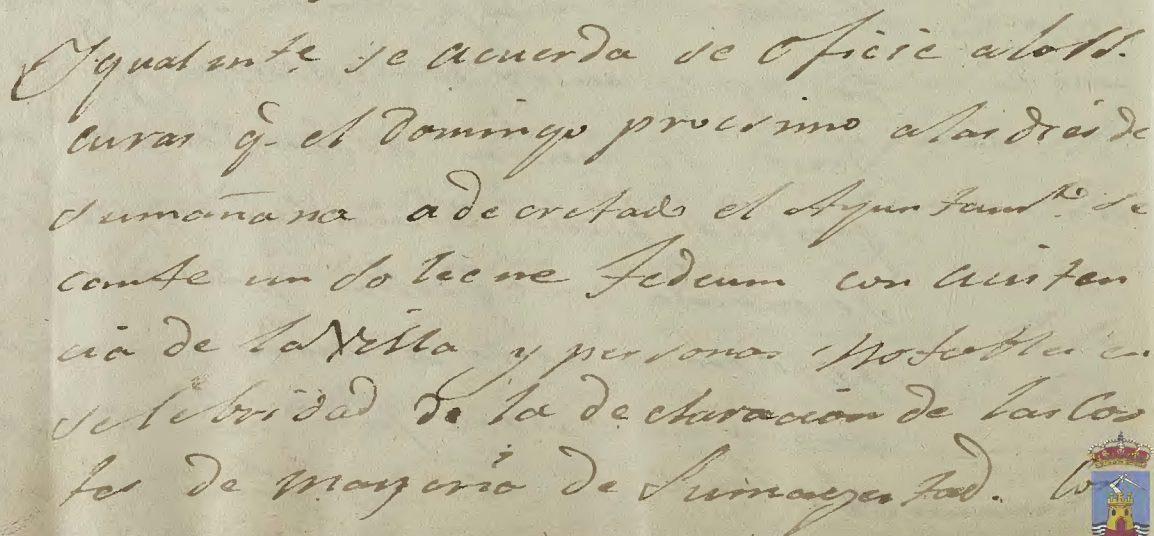 Igualmte. se acuerda se oficie a los SS.
curas q. el Domingo procsimo a las dies de
su mañana a decretado el Ayuntamto. se
cante un solecne Tedeum con acisten
cia de la Villa y personas Notables en
selebridad de la declaracion de las Cor
tes de mayoria de Su magestad. Co